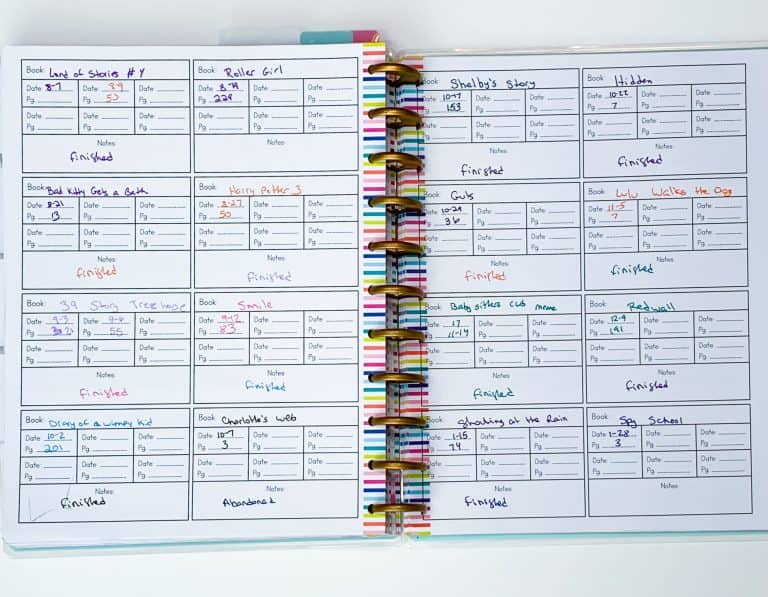 Book: Land of Stories #4
Date 8-7 Date 8-9 Date
Pg Pg 53 Pg
Date Date Date
Pg Pg Pg
Notes
finished
Book: Roller Girl
Date Date Date
Pg 224 Pg Pg
Date Date Date
Pg Pg Pg
Notes
Book: Bad Kitty Gets a Bath
Date 8-21 Date Date
Pg 13 Pg Pg
Date Date Date
Pg Pg Pg
Notes
finished
Book: Harry Potter 3
Date 8-27 Date Date
Pg 50 Pg Pg
Date Date Date
Pg Pg Pg
Notes
finished
Book: 39 Story Treehouse
Date 9-3 Date 9-4 Date
Pg Pg 55 Pg
Date Date Date
Pg Pg Pg
Notes
finished
Book: Smile
Date 9-12 Date Date
Pg 83 Pg Pg
Date Date Date
Pg Pg Pg
Notes
finished
Book: Diary of a wimpy kid
Date 10-2 Date Date
Pg 201 Pg Pg
Date Date Date
Pg Pg Pg
Notes
finished
Book: Charlotte's Web
Date 10-7 Date Date
Pg 3 Pg Pg
Date Date Date
Pg Pg Pg
Notes
Abandoned
Shelby's Story
Date 10-17 Date Date
Pg 153 Pg Pg
Date Date Date
Pg Pg Pg
Notes
finished
Book: Hidden
Date 10-22 Date Date
Pg 7 Pg Pg
Date Date Date
Pg Pg Pg
Notes
finished
Book: Guts
Date 10-29 Date Date
Pg 36 Pg Pg
Date Date Date
Pg Pg Pg
Notes
finished
Book: Lulu Walks the Dog
Date 11-5 Date Date
Pg 7 Pg Pg
Date Date Date
Pg Pg Pg
Notes
finished
Book: Baby sitters club
Date 17 Date Date
Pg 11-14 Pg Pg
Date Date Date
Pg Pg Pg
Notes
finished
Book: Redwall
Date 12-9 Date Date
Pg 191 Pg Pg
Date Date Date
Pg Pg Pg
Notes
finished
Book: Shouting at the Rain
Date 1-15 Date Date
Pg 74 Pg Pg
Date Date Date
Pg Pg Pg
Notes
finished
Book: Spy School
Date 1-28 Date Date
Pg 3 Pg Pg
Date Date Date
Pg Pg Pg
Notes